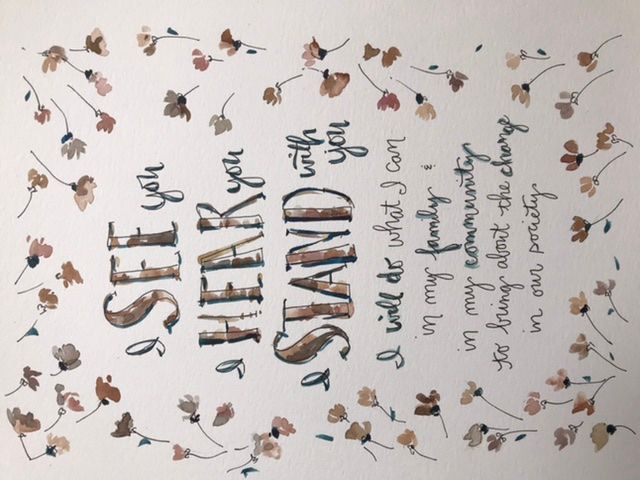 I SEE you
I HEAR you
I STAND with you
I will do what I can
in my family &
in my community
to bring about the change
in our society